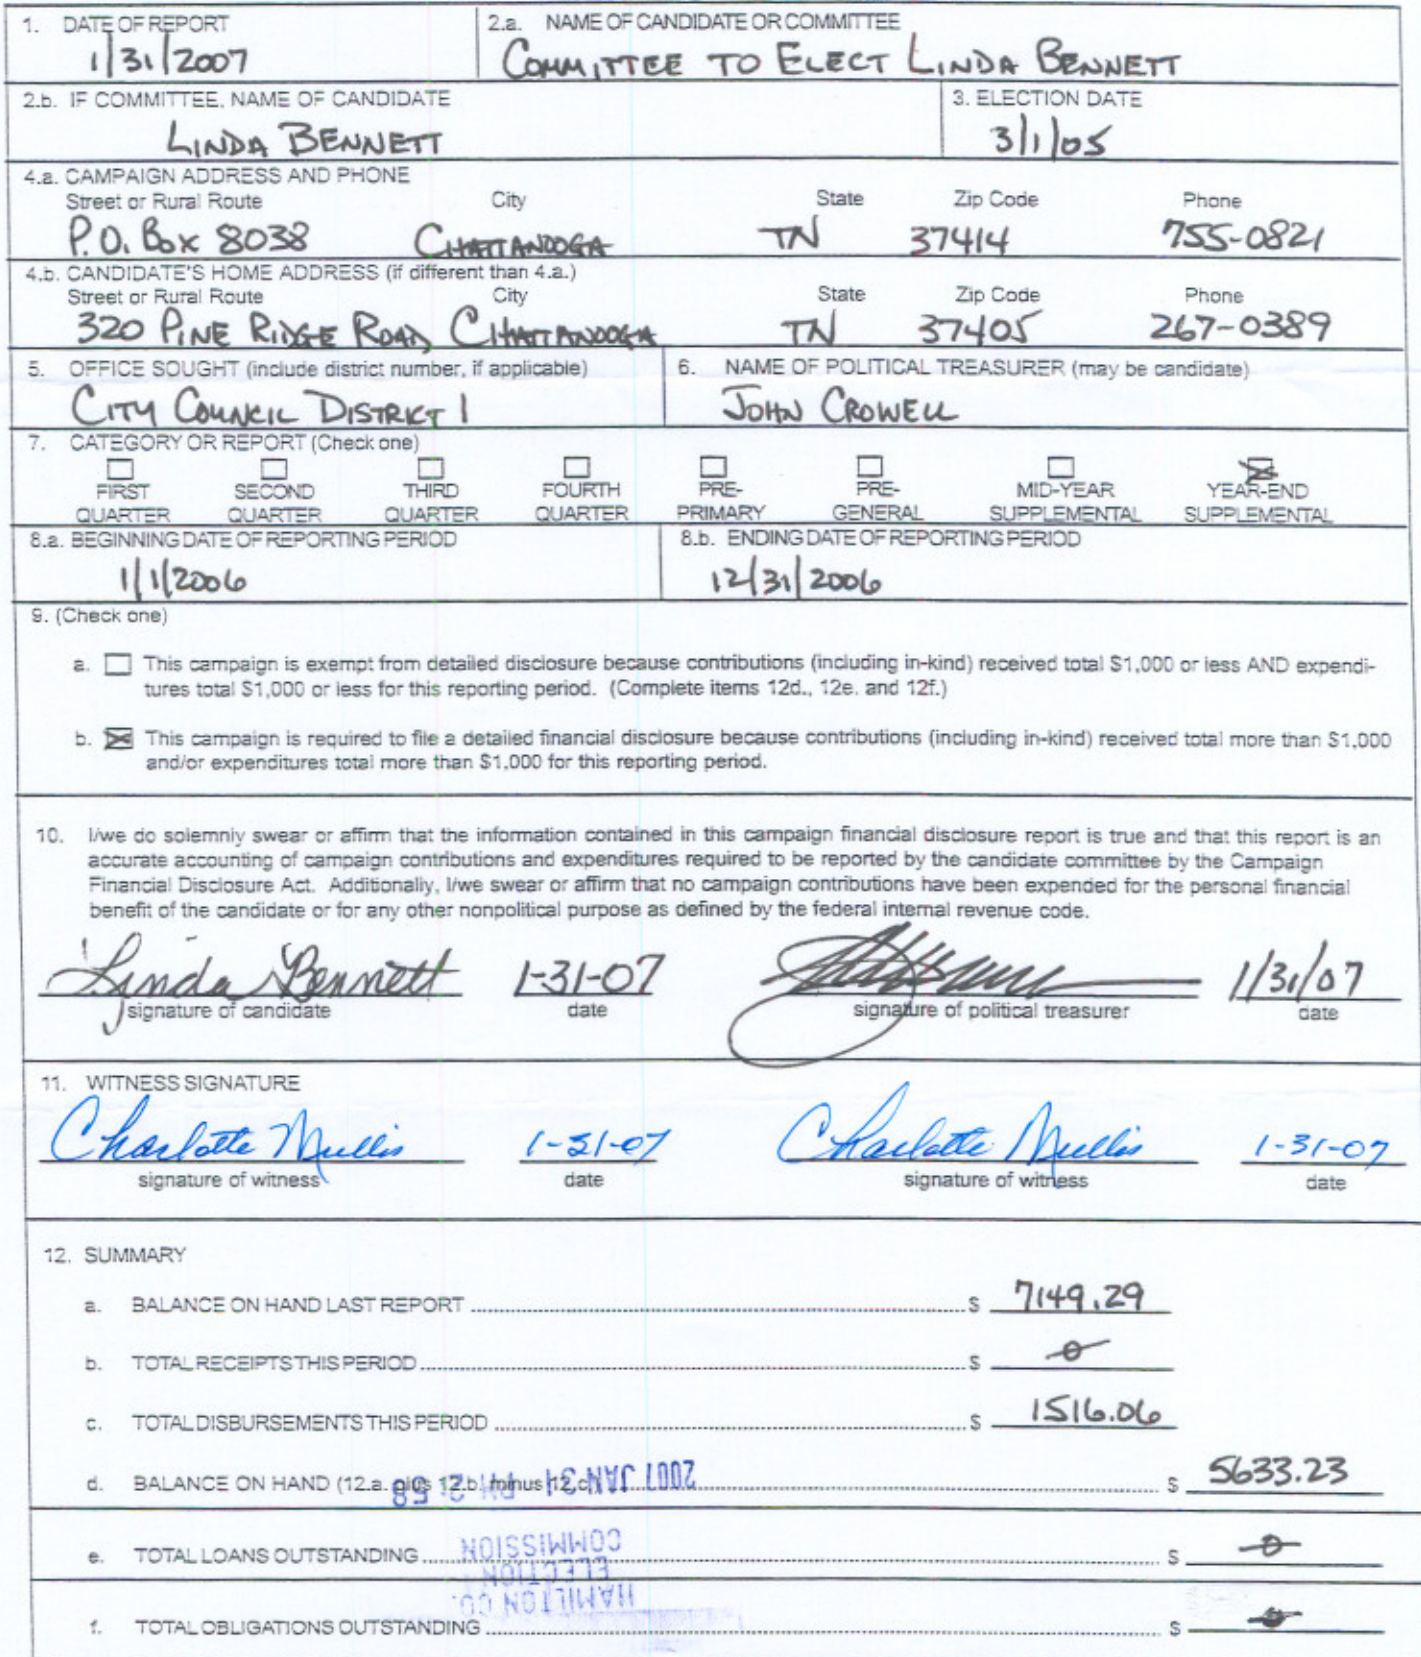 1. DATE OF REPORT
1/31/2007
2.a. NAME OF CANDIDATE OR COMMITTEE
COMMITTEE TO ELECT LINDA BENNETT
2.b. IF COMMITTEE, NAME OF CANDIDATE
LINDA BENNETT
3. ELECTION DATE
3/1/05
4.a. CAMPAIGN ADDRESS AND PHONE
Street or Rural Route City State Zip Code Phone
P.O. BOX 8038 CHATTANOOGA TN 37414 755-0821
4.b. CANDIDATE'S HOME ADDRESS (if different than 4.a.)
Street or Rural Route City State Zip Code Phone
320 PINE RIDGE ROAD, CHATTANOOGA TN 37405 267-0389
5. OFFICE SOUGHT (include district number, if applicable)
CITY COUNCIL DISTRICT 1
6. NAME OF POLITICAL TREASURER (may be candidate)
JOHN CROWELL
7. CATEGORY OR REPORT (Check one)
FIRST QUARTER
SECOND QUARTER
THIRD QUARTER
FOURTH QUARTER
PRE-PRIMARY
PRE-GENERAL
MID-YEAR SUPPLEMENTAL
YEAR-END SUPPLEMENTAL
8.a. BEGINNING DATE OF REPORTING PERIOD
1/1/2006
8.b. ENDING DATE OF REPORTING PERIOD
12/31/2006
9. (Check one)
a. This campaign is exempt from detailed disclosure because contributions (including in-kind) received total $1,000 or less AND expendi-
tures total $1,000 or less for this reporting period. (Complete items 12d., 12e. and 12f.)
b. This campaign is required to file a detailed financial disclosure because contributions (including in-kind) received total more than $1,000
and/or expenditures total more than $1,000 for this reporting period.
10. I/we do solemnly swear or affirm that the information contained in this campaign financial disclosure report is true and that this report is an
accurate accounting of campaign contributions and expenditures required to be reported by the candidate committee by the Campaign
Financial Disclosure Act. Additionally, I/we swear or affirm that no campaign contributions have been expended for the personal financial
benefit of the candidate or for any other nonpolitical purpose as defined by the federal internal revenue code.
Linda Bennett 1-31-07 1/31/07
signature of candidate date signature of political treasurer date
11. WITNESS SIGNATURE
Charlotte Mullis 1-31-07 Charlotte Mullis 1-31-07
signature of witness date signature of witness date
12. SUMMARY
a. BALANCE ON HAND LAST REPORT $ 7149.29
b. TOTAL RECEIPTS THIS PERIOD $ 0
c. TOTAL DISBURSEMENTS THIS PERIOD $ 1516.06
d. BALANCE ON HAND (12.a. plus 12.b. minus 12.c. $ 5633.23
2007 JAN 31 PM 2: 58
e. TOTAL LOANS OUTSTANDING $ 0
HAMILTON CO.
ELECTION
COMMISSION
f. TOTAL OBLIGATIONS OUTSTANDING $ 0